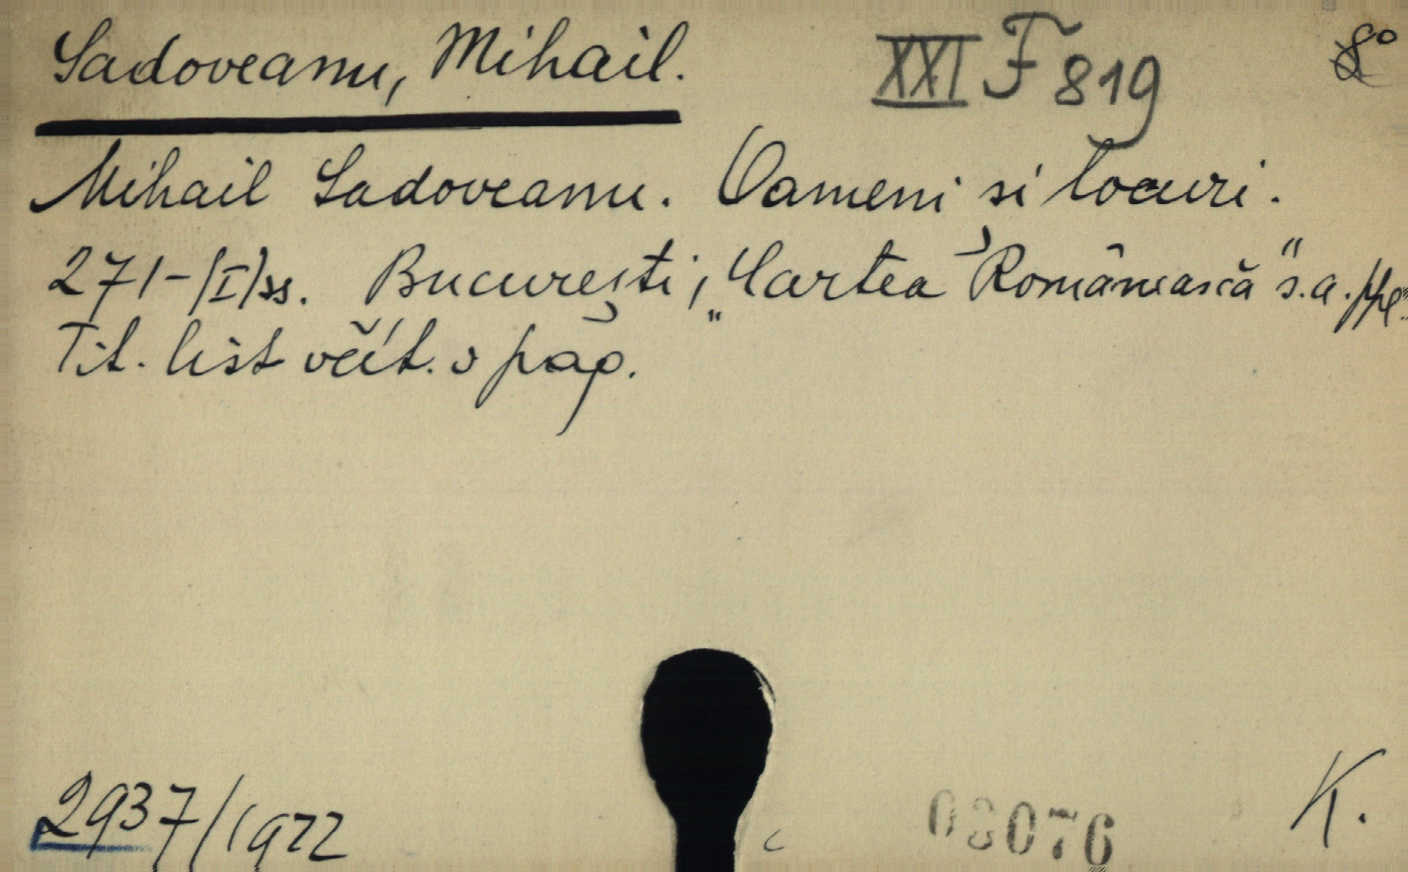 Sadoveanu, Mihail. XXI F 819 8°
Mihail Sadoveanu. Oameni și locuri.
271-[I] ss. București, „Cartea Românească" s.a.
Tit. list včít. v pag.
2937/1922 03076 K.